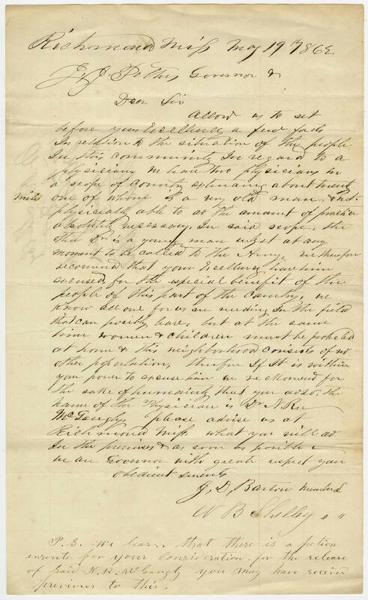 Richmond Miss May 19th 1862
J J Pettus Governor &
Dear Sir
Allow us to set
before your Excellency a few facts
In relation to the situation of the people
In this community In regard to a
physician we have two physicians in
a scope of Country about twenty
miles one of whom is a very old man & not
physically able to do the amount of practice
absolutely necessary. In said scope, the
other Dr is a young man subject at any
moment to be called to the Army, we therefore
recommend that your Excellency have him
excused for the special benefit of the
people of this part of the Country, we
know all our forces are needed In the field
that can possibly leave, but at the same
time women & children must be protected
at home & this neighborhood consists of no
other population, therefore If It is within
your power to excuse him we recommend for
the sake of humanity that you do so. the
name of the Physician is Dr N. R.
McGaughy please advise us at
Richmond Miss what you will do
In the premises & as soon as possible &
we are Governor with great respect your
obedient servants
J. D. Barton
N B Shelby " "
P. S. We hear that there is a petition
for your consideration for the release
of said N. R. McGaughy you may have received
previous to this.